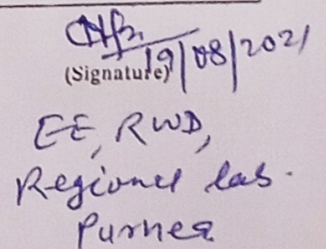 19/08/2021
(Signature)
EE, RWD,
Regional Lab.
Purnea